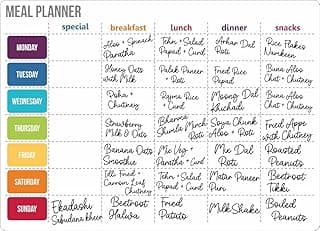 MEAL PLANNER
special breakfast lunch dinner snacks
MONDAY
Aloo + Spinach
Paratha
Tehn + Salad
Papad + Curd
Arhar Dal
Roti
Rice Flakes
Namkeen
TUESDAY
Honey Oats
with Milk
Palak Paneer
+ Roti
Fried Rice
Papad
Bina Aloo
Chat + Chutney
WEDNESDAY
Poha +
Chutney
Rajma Rice
+ Curd
Moong Dal
Khichadi
Bina Aloo
Chat + Chutney
THURSDAY
Strawberry
Milk & Oats
Bharma
Shimla Mirch
Roti
Soya Chunk
Aloo + Roti
Fried Appe
with Chutney
FRIDAY
Banana Oats
Smoothie
Mix Veg +
Paratha + Curd
Mix Dal
Roti
Roasted
Peanuts
SATURDAY
Idli Fried +
Carrom Leaf
Chutney
Tehn + Salad
Papad + Curd
Matar Paneer
Puri
Beetroot
Tikki
SUNDAY
Ekadashi
Sabudana kheer
Beetroot
Halwa
Fried
Potato
MilkShake
Boiled
Peanuts